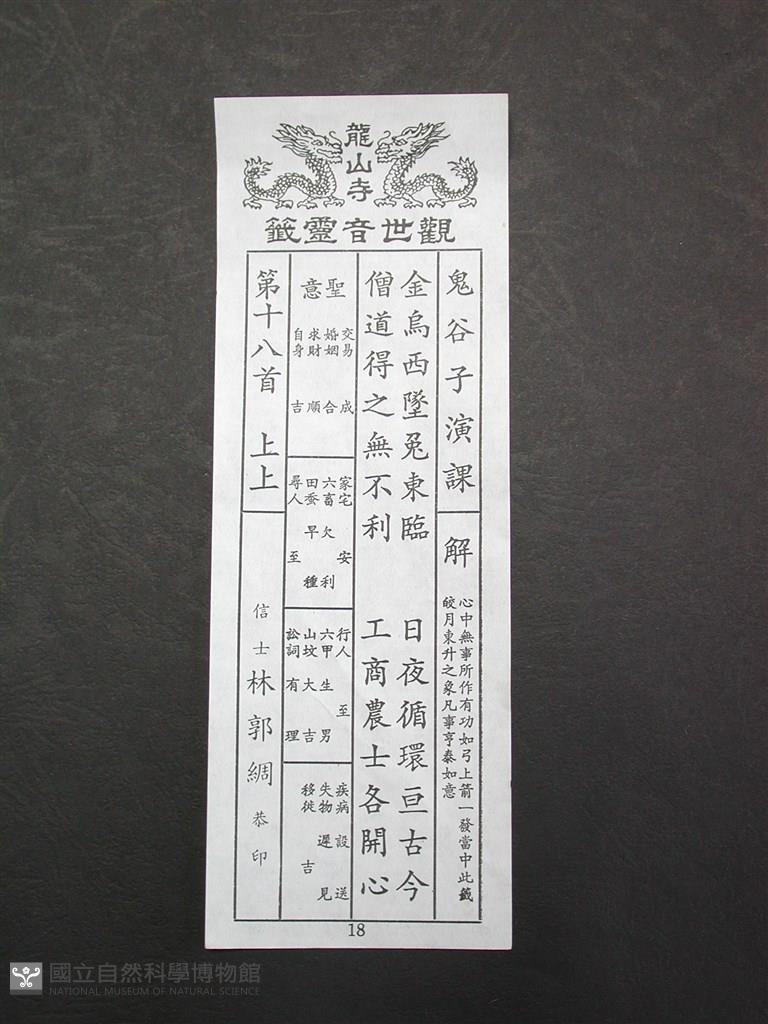 龍山寺
觀世音靈籤
鬼谷子演課
解
心中無事所作有功如弓上箭一發當中此籤
皎月東升之象凡事亨泰如意
金烏西墜兔東臨 日夜循環亘古今
僧道得之無不利 工商農士各開心
聖意
交易 成
婚姻 合
求財 順
自身 吉
家宅 安
六畜 欠利
田蚕 早種
尋人 至
行人 至
六甲 生男
山坟 大吉
訟詞 有理
疾病 設送
失物 遲見
移徙 吉
第十八首 上上
信士 林郭綢 恭印
18
國立自然科學博物館
NATIONAL MUSEUM OF NATURAL SCIENCE